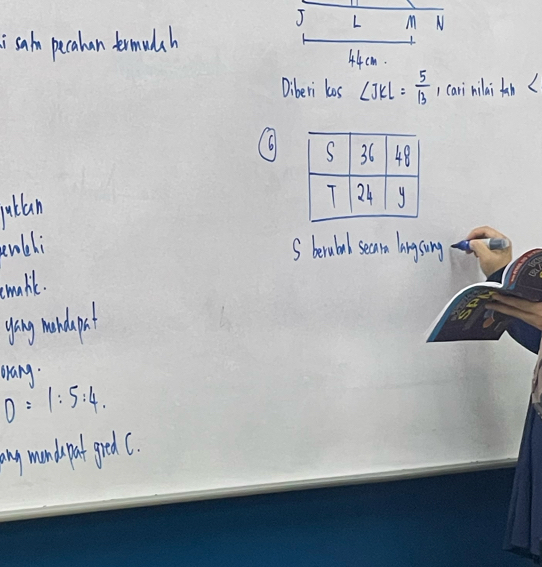 i satu pecahan termudah
orang.
D = 1:5:4.
yang mendapat
ang mendapat gred C.
J L M N
44 cm.
Diberi kos ∠JKL = 5/13, cari nilai tan ∠
6
S 36 48
T 24 y
S berubah secara langsung